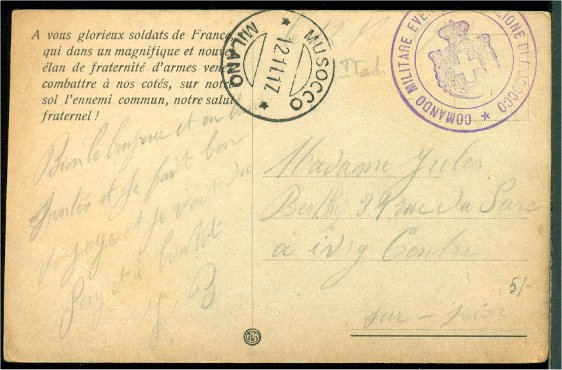 A vous glorieux soldats de France
qui dans un magnifique et nouvel
élan de fraternité d'armes venez
combattre à nos cotés, sur notre
sol l'ennemi commun, notre salut
fraternel !
MUSOCCO
MILANO
12.11.17
COMANDO MILITARE STAZIONE DI MUSOCCO
Ital.
Bonjour et en
Santée et je fait bon
voyage et je
à bientot
J. B
Madame Jules
Berthe 39 rue du Parc
à ivry Centre
sur-seine
5/-